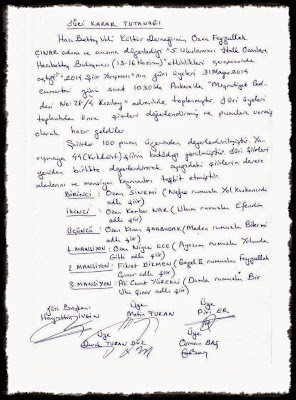 JÜRİ KARAR TUTANAĞI
Hacı Bektaş Veli Kültür Derneğinin Ozan Feyzullah
ÇINAR adına ve anısına düzenlediği "5. Uluslararası Halk Ozanları
Hacıbektaş Buluşması (13-16 Haziran)" etkinlikleri çerçevesinde
açtığı "2014 Şiir Yarışması"nın jüri üyeleri 31 Mayıs 2014
cumartesi günü saat 10.30'da Ankara'da "Meşrutiyet Cad-
desi No: 28/4 Kızılay" adresinde toplanmıştır. Jüri üyeleri
toplantıdan önce şiirleri değerlendirmiş ve puanlarını vermiş
olarak hazır geldiler.
Şiirler 100 puan üzerinden değerlendirilmiştir. Ya-
rışmaya 44 (Kırkdört) şiirin katıldığı görülmüştür. Jüri şiirleri
yeniden birlikte değerlendirerek aşağıdaki şiirlerin derece
alanlarını ve mansiyon kazananları tespit etmiştir.
BİRİNCİ : Ozan SİNEMİ ( rumuzlu Yol
adlı şiir)
İKİNCİ : Ozan Kanber NAR ( rumuzlu Efendim
adlı şiir)
ÜÇÜNCÜ : Ozan Kenan ŞAHBUDAK ( rumuzlu
adlı şiir)
1. MANSİYON : Ozan Niyazi ECE ( rumuzlu Yolunda
Gitti adlı şiir)
2. MANSİYON : Fikret DİKMEN ( II rumuzlu Feyzullah
Çınar adlı şiir)
3. MANSİYON : Ali Cemal YÜREKLİ (Damla rumuzlu Bir
Ulu Çınar adlı şiir)
Jüri Başkanı Üye Üye
Hayrettin İVGİN Metin TURAN ER
Üye Üye
TURAN Osman BAŞ